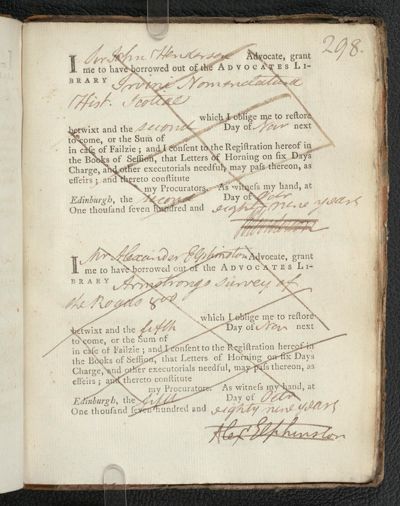 298.
I Sir John Henderson Advocate, grant
me to have borrowed out of the ADVOCATES LI-
BRARY Irvini Nomenclatura
Hist. Scoticæ
which I oblige me to reſtore
betwixt and the second Day of Novr next
to come, or the Sum of
in caſe of Failzie; and I conſent to the Regiſtration hereof in
the Books of Seſſion, that Letters of Horning on ſix Days
Charge, and other executorials needful, may paſs thereon, as
effeirs; and thereto conſtitute
my Procurators. As witneſs my hand, at
Edinburgh, the second Day of
One thouſand ſeven hundred and eighty nine years
I Mr Alexander Elphinston Advocate, grant
me to have borrowed out of the ADVOCATES LI-
BRARY Armstrongs survey of
the Roads 8vo
which I oblige me to reſtore
betwixt and the fifth Day of Novr next
to come, or the Sum of
in caſe of Failzie; and I conſent to the Regiſtration hereof in
the Books of Seſſion, that Letters of Horning on ſix Days
Charge, and other executorials needful, may paſs thereon, as
effeirs; and thereto conſtitute
my Procurators. As witneſs my hand, at
Edinburgh, the fifth Day of
One thouſand ſeven hundred and eighty nine years
Alex Elphinston